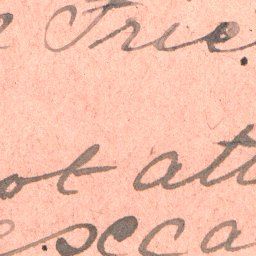 e Frie
ot att
e seca